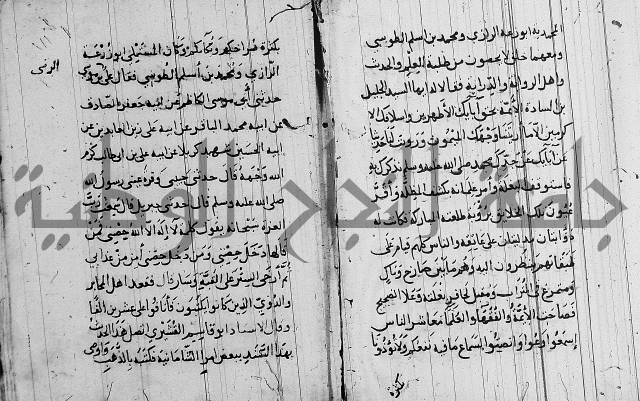 المحدثه ابو زرعة الرازي ومحمد بن اسلم الطوسي
ومعهما خلق لا يحصون من طلبة العلم والحديث
واهل الرواية والدراية فقالا له ايها السيد الجليل
بن السادة الأئمة بحق آبائك الأطهرين واسلافك الا
كرمين الا ما اريتنا وجهك الميمون ورويت لنا حديثا
عن آبائك عن جدك محمد صلى الله عليه وسلم نذكرك به
فاستوقف البغلة وامر غلمانه بكشف المظلة وأقر
عيون تلك الخلائق برؤية طلعته المباركة فكانت له
ذؤابتان مدليتان على عاتقه والناس كلهم قيام على
طبقاتهم ينظرون اليه وهم ما بين صارخ وباك
ومتمرغ في التراب ومقبل لحافر بغلته وعلا الضجيج
فصاحت الأئمة والفقهاء والعلماء معاشر الناس
اسمعوا وعوا وانصتوا لسماع ما فيه نفعكم ولا تؤذونا
بكثرة
بكثرة صراخكم وبكائكم وكان المستملي ابو زرعة
الرازي ومحمد بن أسلم الطوسي فقال علي بن موسى
الرضى
حدثني أبي موسى الكاظم عن ابيه جعفر الصادق
عن ابيه محمد الباقر عن ابيه علي زين العابدين عن
ابيه الحسين شهيد كربلا عن ابيه علي بن ابي طالب كرم
الله وجهه قال حدثني حبيبي وقرة عيني رسول الله
صلى الله عليه وسلم قال حدثني جبريل قال سمعت رب
العزة سبحانه يقول كلمة لا اله الا الله حصني فمن
قالها دخل حصني ومن دخل حصني أمن من عذابي
ثم أرخى الستر على القبة وسار قال فعد اهل المحابر
والدوي الذين كانوا يكتبون فأنافوا على عشرين الفا
وقال الاستاد ابو قاسم القشيري اتصل هذا الحديث
بهذا السند ببعض امرا السامانيه فكتبه بالذهب واوصى
جامعة النجاح الوطنية